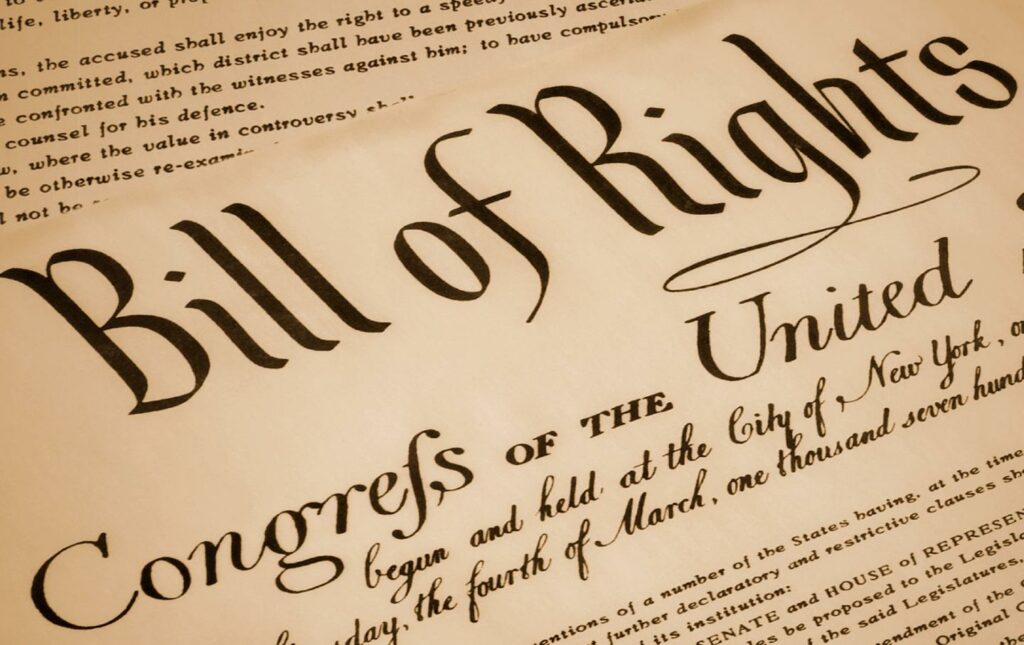 life, liberty, or
the accused shall enjoy the right to a speedy
committed, which district shall have been previously
confronted with the witnesses against him; to have compulsory
counsel for his defence.
where the value in controversy
be otherwise
not be
Bill of Rights
Congreſs OF THE United
begun and held at the City of New York,
the fourth of March, one thousand seven
of a number of the States having, at the time
further declaratory and restrictive clauses
its institution:
SENATE and HOUSE of
be proposed to the
of the said Legislatures,
of the
Original